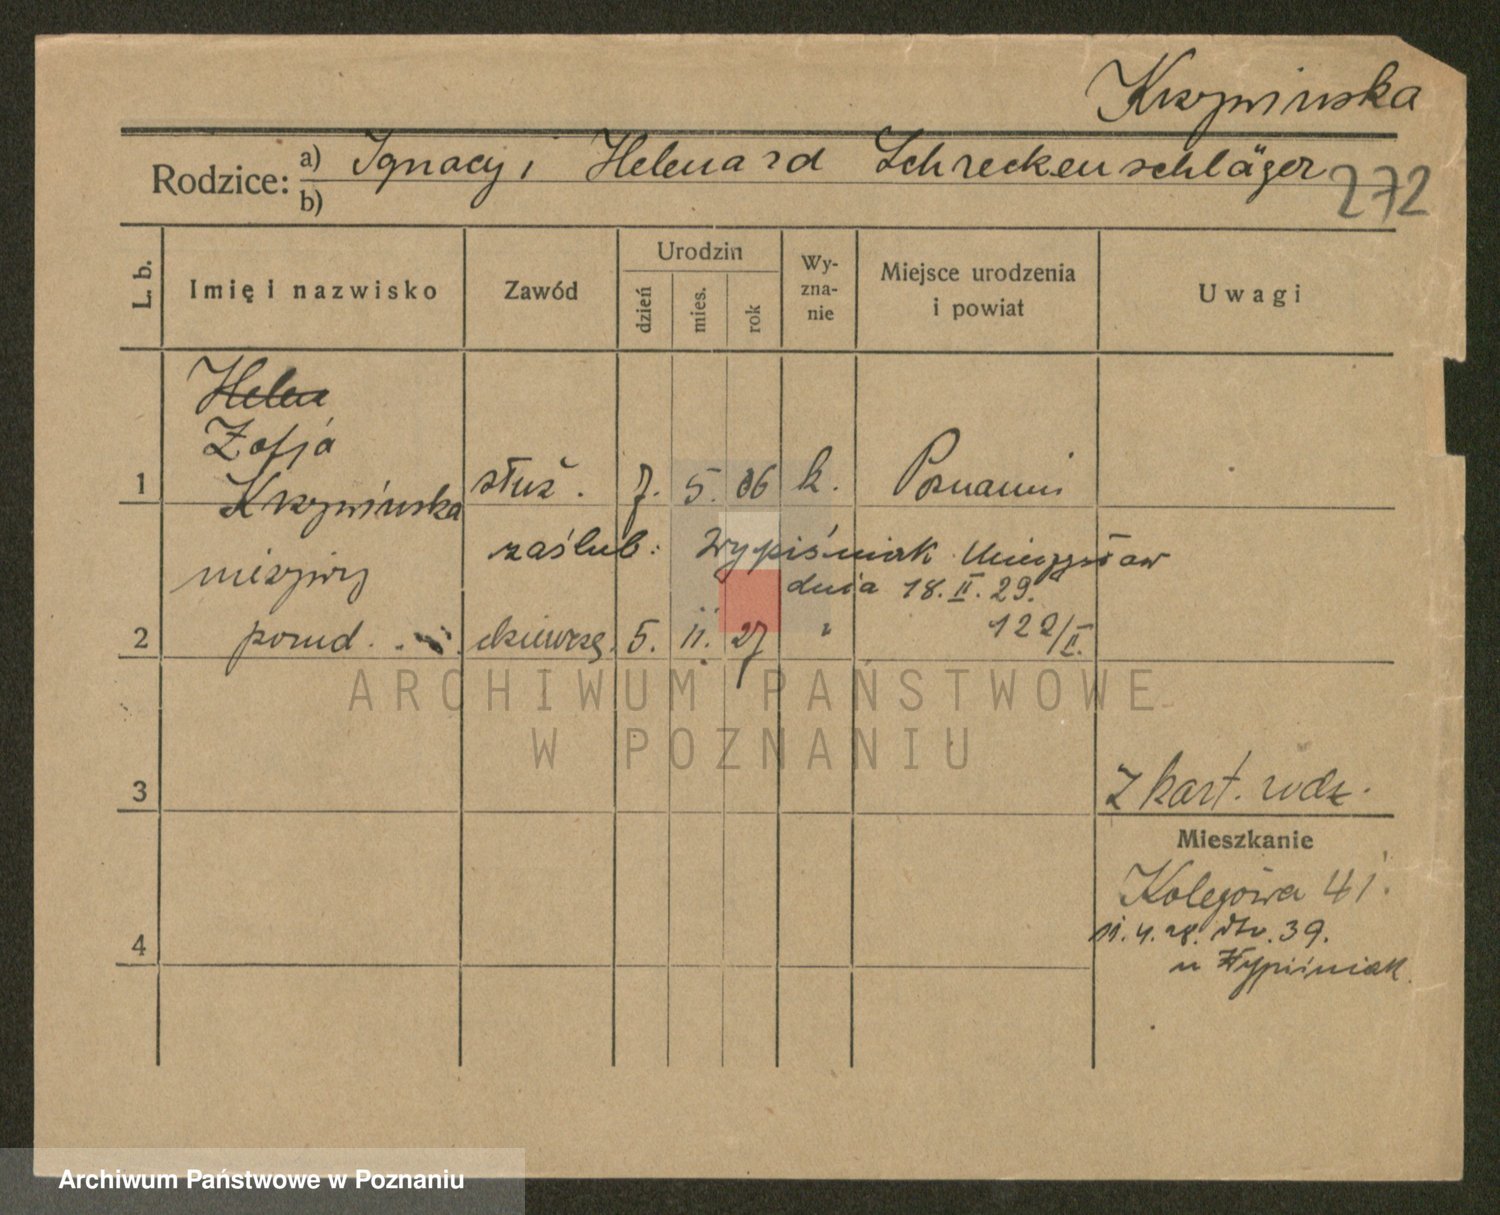 Krzywińska
Rodzice: a) Ignacy i Helena zd Schreckenschläger
b)
272
L. b.
Imię i nazwisko
Zawód
Urodzin
dzień
mies.
rok
Wy-
zna-
nie
Miejsce urodzenia
i powiat
Uwagi
Helen
Zofja
1 Krzywińska służ. 7. 5. 06 k. Poznaniu
zaślub: Wypiśniak Mieczysław
dnia 18. II. 29.
122/II.
nieżywy
2 porod. dziewczę. 5. 11. 27 "
ARCHIWUM PAŃSTWOWE
W POZNANIU
3
z kart. rodz.
Mieszkanie
Kolejowa 41.
11.4.28. dto. 39.
u Wypiśniak.
4
Archiwum Państwowe w Poznaniu